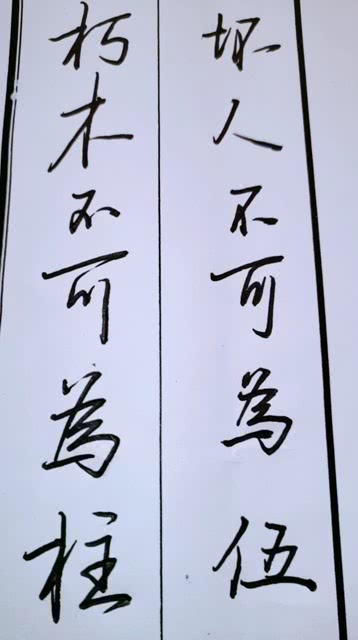 坏人不可為伍
朽木不可為柱